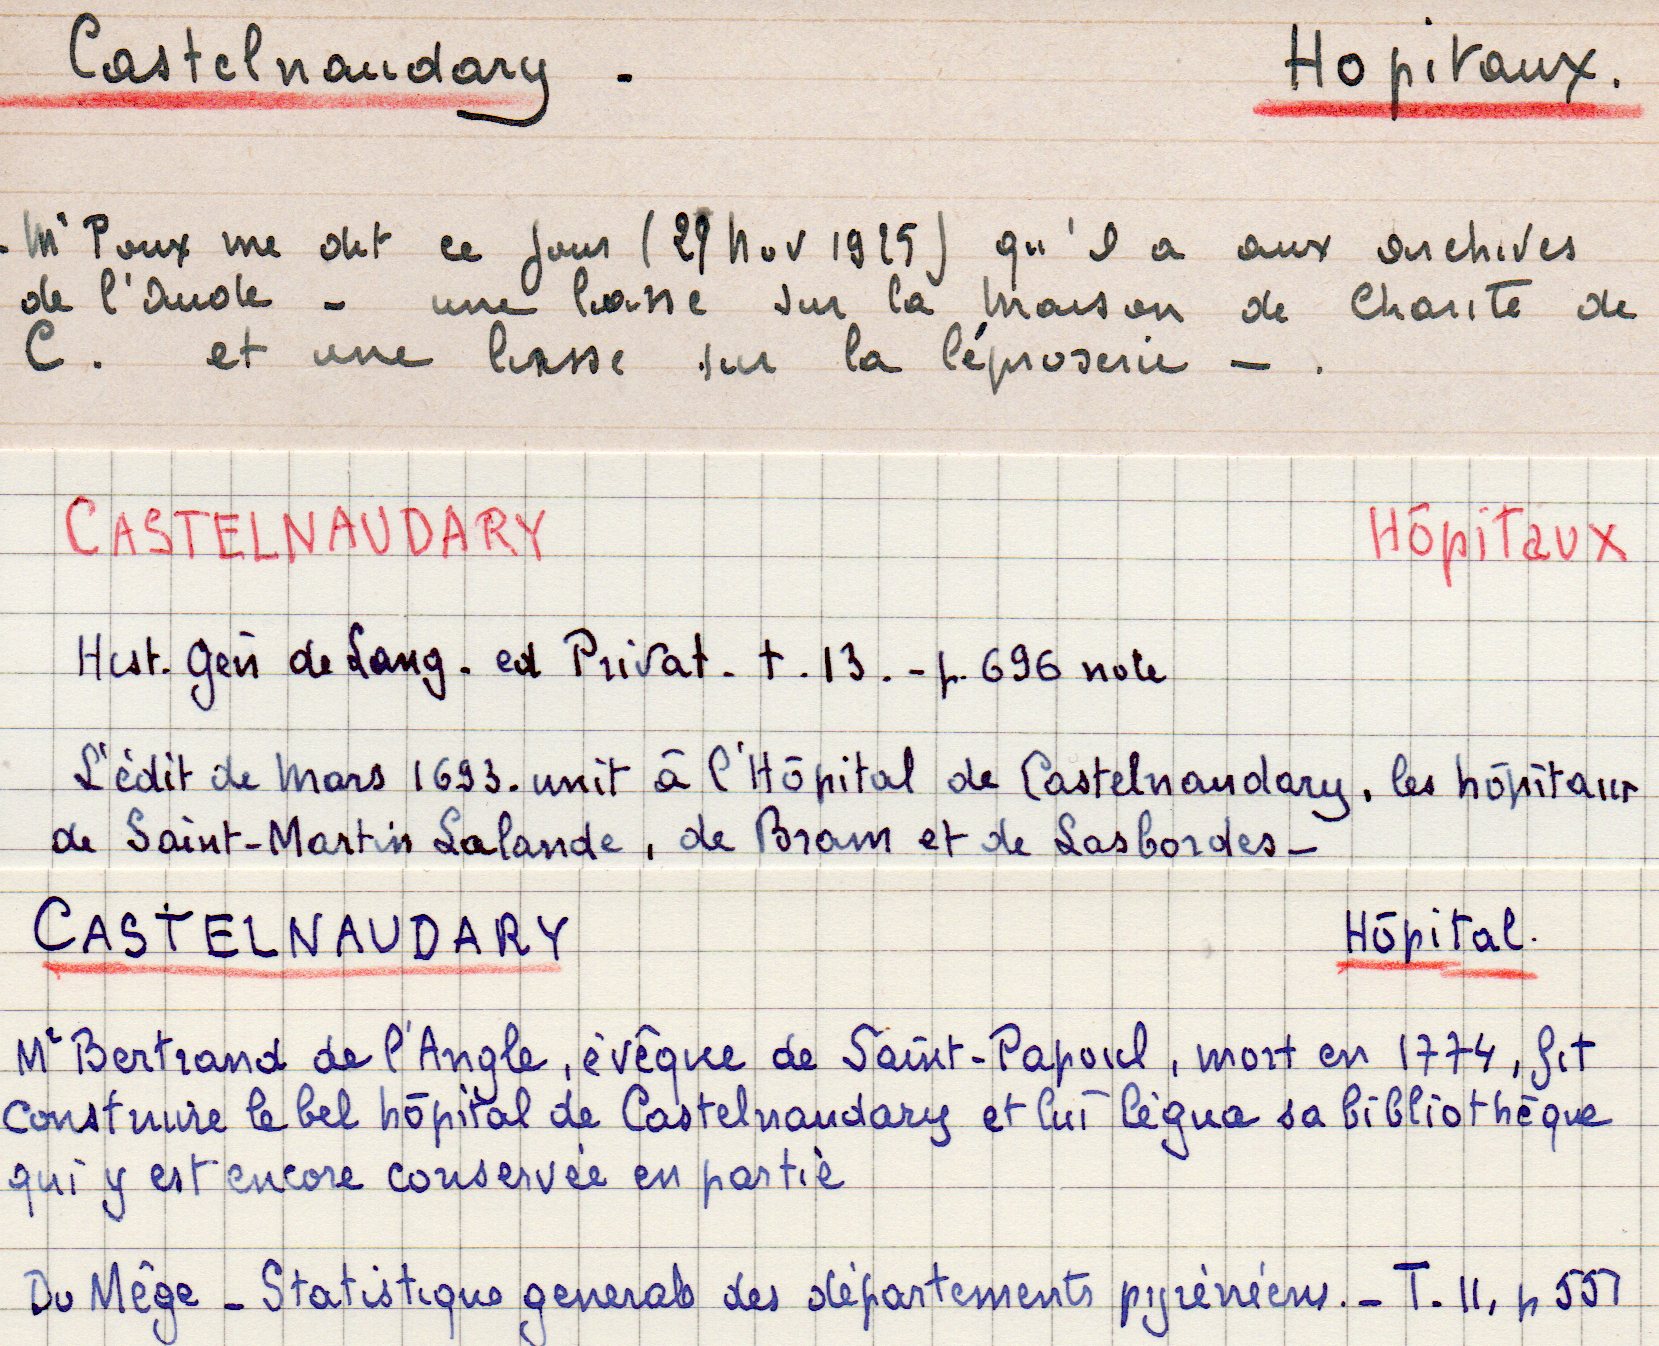 Castelnaudary - Hopitaux.
- Mr Poux me dit ce jour (29 Nov 1925) qu'il a aux archives
de l'Aude - une liasse sur la Maison de Charité de
C. et une liasse sur la léproserie - .
CASTELNAUDARY Hôpitaux
Hist. Gén de Lang. ed Privat. t. 13. - p. 696 note
L'édit de Mars 1693. unit à l'Hôpital de Castelnaudary, les hôpitaux
de Saint-Martin Lalande, de Bram et de Lasbordes -
CASTELNAUDARY Hôpital.
Mr Bertrand de l'Angle, évêque de Saint-Papoul, mort en 1774, fit
construire le bel hôpital de Castelnaudary et lui légua sa bibliothèque
qui y est encore conservée en partie
Du Mège - Statistique generale des départements pyrénéens. - T. II, p 557